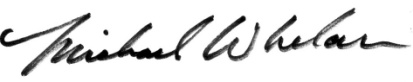 Michael Whelan